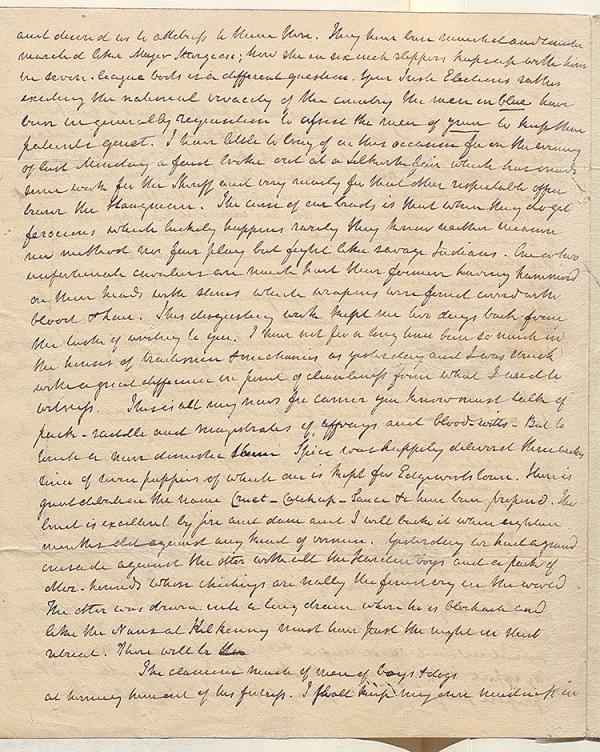 and desired us to address to them there. They have been marched and counter
marched like Major Sturgeon; how she in six inch slippers keeps up with him
in seven-league boots is a different question. Your Irish Elections rather
exceeding the national vivacity of the country the men in blue have
been in generally requisition to assist the men of to keep their
patients quiet. I have little to brag of on this occasion for on the evening
of last Monday a feud broke out at a Selkirk fair which has made
some work for the Sheriff and very nearly for that other respectable officer
the Hangman. The curse of our brawls is that when they do get
ferocious which luckily happens rarely they know neither measure
nor method nor fair play but fight like savage Indians. One or two
unfortunate are much hurt their foemen having hammered
on their heads with stones which weapons were found covered with
blood & hair. This disgusting work kept me two days back from
the task of writing to you. I have not for a long time been so much in
the houses of tradesmen & mechanics as yesterday and I was struck
with a great difference in point of cleanliness from what I used to
witness. This is all my news for carriers you know must talk of
pack-saddles and magistrates of affrays and blood-wits. But to
touch a more domestic theme Spice was happily delivered three weeks
since of seven puppies of which one is kept for Edgeworthstown. There is
great debate on the name Cruet-Catchup-Sauce & have been proposed. The
breed is excellent by sire and dam and I will back it when eighteen
months old against any head of vermin. Yesterday we had a grand
crusade against the otter with all the boys and a pack of
otter-hounds whose chidings are really the finest cry in the world.
The otter was driven into a long drain where he is blockaded and
like the Nuns at Kilkenny must have past the night in that
retreat. There will be
The clamour much of men of boys & dogs
at morning hunt of his fastness. I shall keep my own